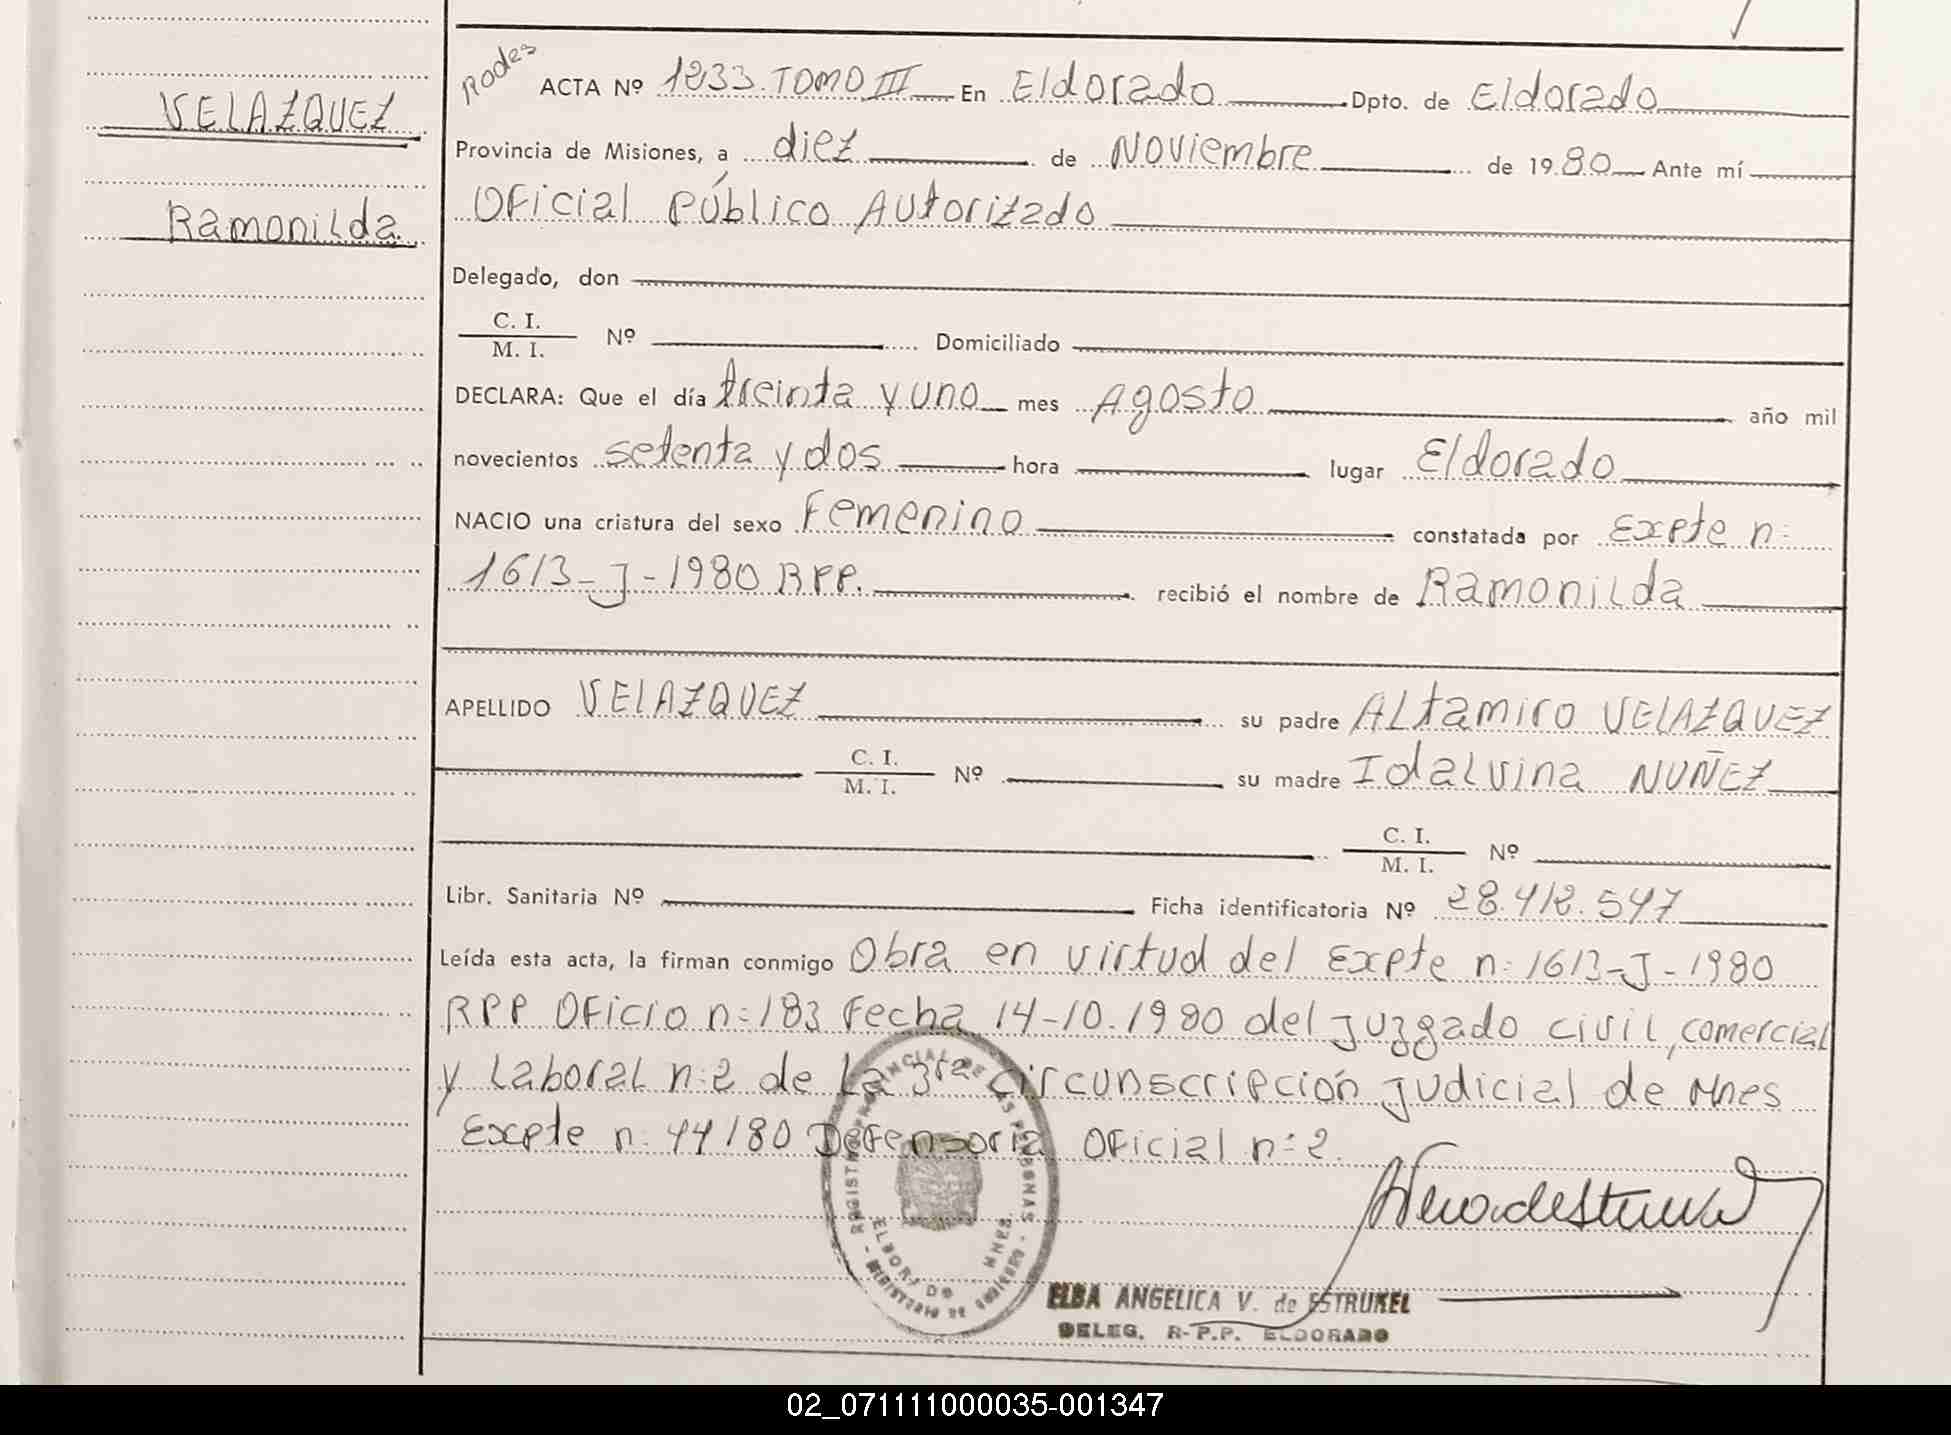 VELAZQUEZ
Ramonilda
Rodes
ACTA Nº 1233 TOMO III En Eldorado Dpto. de Eldorado
Provincia de Misiones, a diez de Noviembre de 1980 Ante mí
Oficial Público Autorizado
Delegado, don
C. I.
M. I. Nº Domiciliado
DECLARA: Que el día treinta y uno mes Agosto año mil
novecientos setenta y dos hora lugar Eldorado
NACIO una criatura del sexo Femenino constatada por Expte n:
1613-J-1980 RPP. recibió el nombre de Ramonilda
APELLIDO VELAZQUEZ su padre Altamiro VELAZQUEZ
C. I.
M. I. Nº su madre Idalvina NUÑEZ
C. I.
M. I. Nº
Libr. Sanitaria Nº Ficha identificatoria Nº 28.412.547
Leída esta acta, la firman conmigo Obra en virtud del Expte n: 1613-J-1980
RPP Oficio n:183 Fecha 14-10.1980 del juzgado civil, comercial
y Laboral n:2 de La 3ra Circunscripción judicial de Mnes
Expte n: 44/80 Defensoria Oficial n:2.
REGISTRO PROVINCIAL DE LAS PERSONAS
ELDORADO MNES
MINISTERIO DE GOBIERNO
ELBA ANGELICA V. de ESTRUKEL
DELEG. R-P.P. ELDORADO
02_071111000035-001347